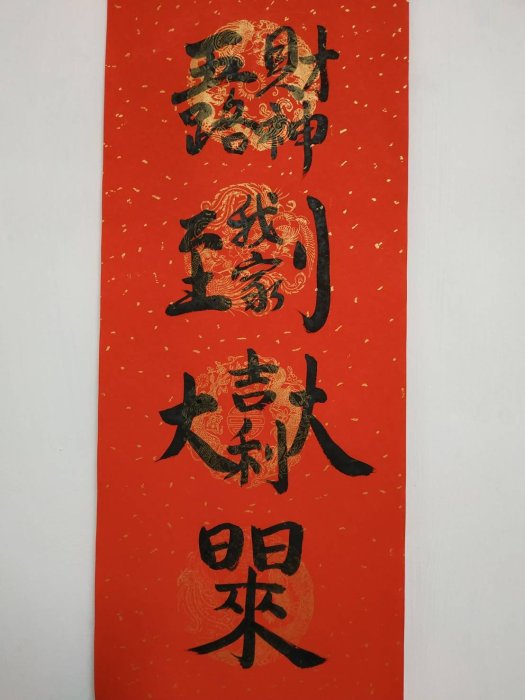 五路財神
到我家
大吉大利
日日來